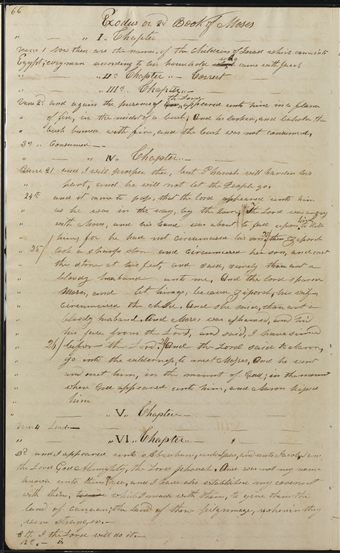 66
Exodus or 2d Book of Moses
" " I Chapter
verse 1 Now these are the names, of the children of Israel which came into
Egypt; every man according to his household who came with Jacob
" " IId Chapter " Correct
" " IIId Chapter
verse 2d and again the presence of the Lord, appeared unto him in a flame
" of fire, in the midst of a bush; And he looked, and behold the
" bush burned with fire, and the bush was not consumed,
3d " Consumed
" " IV Chapter
verse 21 and I will prosper thee, but Pharaoh will harden his
" heart, and he will not let the People go,
24th and it came to pass, that the Lord appeared unto him
" as he was in the way, by the Inn; The Lord was angry
" with Moses, and his hand was about to fall upon him to kill
" him, for he had not circumcised his son, Then Zipporah
25 took a sharp stone and circumcised her son, and cast
" the stone at his feet, and said, surely thou art a
" bloody husband unto me, And the Lord spared
" Moses, and let him go, because Zipporah, his wife
" circumcised the child. And she said, thou art a
" bloody husband. And Moses was ashamed, and hid
" his face from the Lord, and said, I have sinned
26 before the Lord, And the Lord said unto Aaron,
" Go into the wilderness, to meet Moses, And he went
" and met him, in the mount of God; in the mount
" where God appeared unto him, and Aaron kissed
" him
" V Chapter
verse 4 Lead
" " VI Chapter "
3d and I appeared unto Abraham, unto Isaac, and unto Jacob, I am
the Lord God Almighty, the Lord Jehovah. And was not my name
known unto them? Yea, and I have also established my covenant
with them, which I made with them, to give them the
land of Canaan, the land of their pilgrimage, wherein they
were strangers.
8 I the Lord will do it.